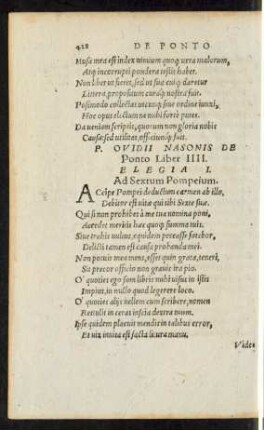 428 DE PONTO
Musa mea est index nimium quoq; uera malorum,
Atq; incorrupti pondera testis habet.
Non liber ut fieret, sed ut sua cuiq; daretur
Littera, propositum curaq; nostra fuit.
Postmodo collectas utcunq; sine ordine iunxi,
Hoc opus electum ne mihi forte putes.
Da ueniam scriptis, quorum non gloria nobis
Causa sed utilitas officiumq; fuit.
P. OVIDII NASONIS DE
Ponto Liber IIII.
ELEGIA I.
Ad Sextum Pompeium.
ACcipe Pompei deductum carmen ab illo,
Debitor est uitæ qui tibi Sexte suæ.
Qui si non prohibes à me tua nomina poni,
Accedet meritis hæc quoq; summa tuis.
Siue trahis uultus, equidem peccasse fatebor,
Delicti tamen est causa probanda mei.
Non potuit mea mens, esset quin grata, teneri,
Sit precor officio non grauis ira pio.
O' quoties ego sum libris mihi uisus in istis
Impius, in nullo quod legerere loco.
O' quoties alij uellem cum scribere, nomen
Rettulit in ceras inscia dextra tuum.
Ipse quidem placuit mendis in talibus error,
Et uix inuita est facta litura manu.
Vide